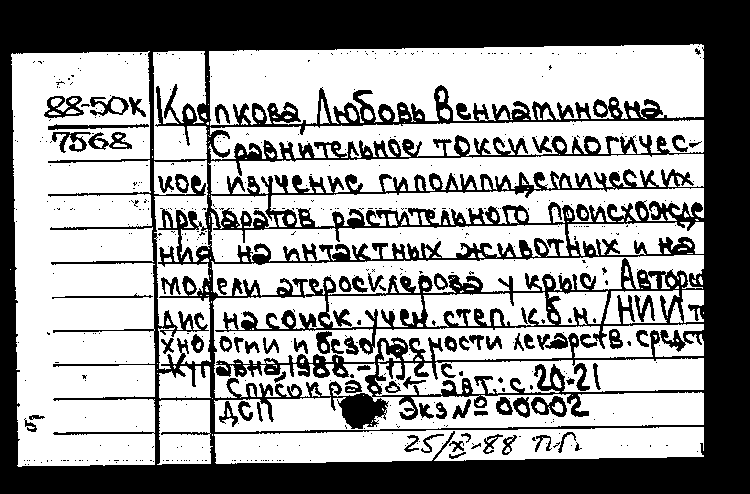 88-50К
7568
Крепкова, Любовь Вениаминовна.
Сравнительное токсикологичес-
кое изучение гиполипидемических
препаратов растительного происхожде
ния на интактных животных и на
модели атеросклероза у крыс: Автореф
дис на соиск. учен. степ. к.б.н. / НИИ те
хнологии и безопасности лекарств. средст
-Купавна, 1988.-[1] 21с.
Список работ авт.: с. 20-21
ДСП Экз № 00002
25/XI-88 П.П.